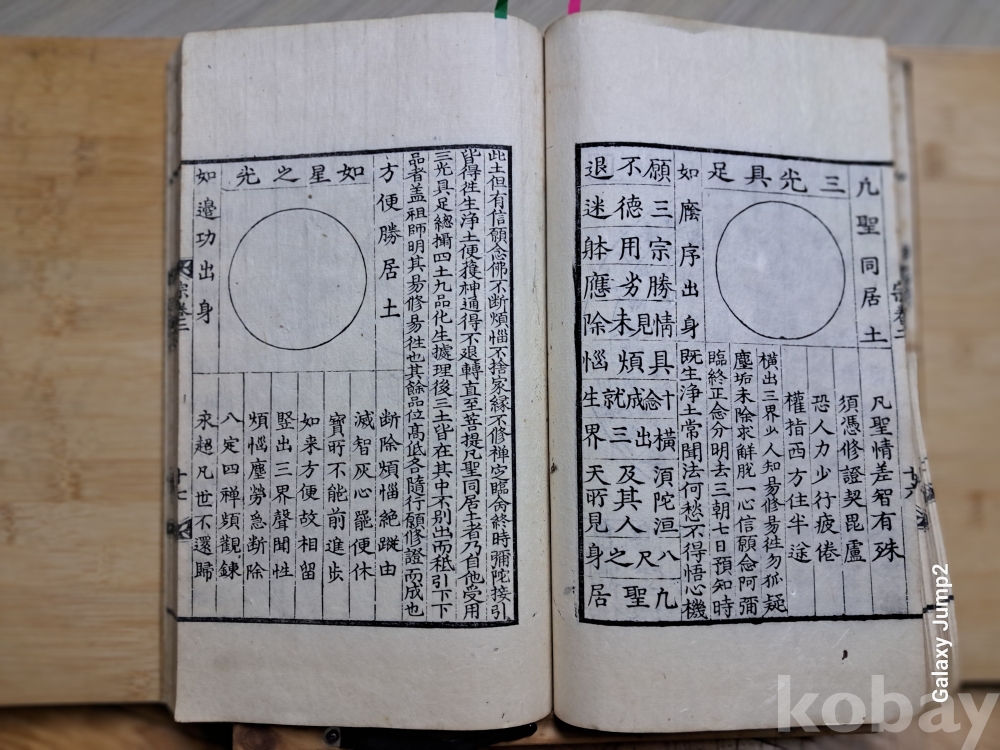 凡聖同居土
三光具足
凡聖情差智有殊
須憑修證契毘盧
恐人力少行疲倦
權指西方住半途
橫出三界少人知易修易徃勿狐疑
塵垢未除求解脫一心信願念阿彌
臨終正念分明去三朝七日預知時
既生淨土常聞法何愁不得悟心機
如廕序出身
願不退
三德迷
宗用躰
勝劣應
情見未除
具煩惱
十念成就生
橫出三界
宗卷二
十六
此土但有信願念佛不断煩惱不捨家縁不修禅定臨命終時彌陀接引
皆得徃生淨土便獲神通得不退轉直至菩提凡聖同居土者乃自他受用
三光具足總攝四土九品化生據理後三土皆在其中不別出而秪引下下
品者盖祖師明其易修易徃也其餘品位高低各隨行願修證而成也
方便勝居土
如星之光
断除煩惱絶蹤由
滅智灰心罷便休
寶所不能前進步
如来方便故相留
竪出三界聲聞性
煩惱塵勞急断除
八定四禅頻觀鍊
永超凡世不還歸
如邊功出身
宗卷二
十七
Galaxy Jump2
kobay